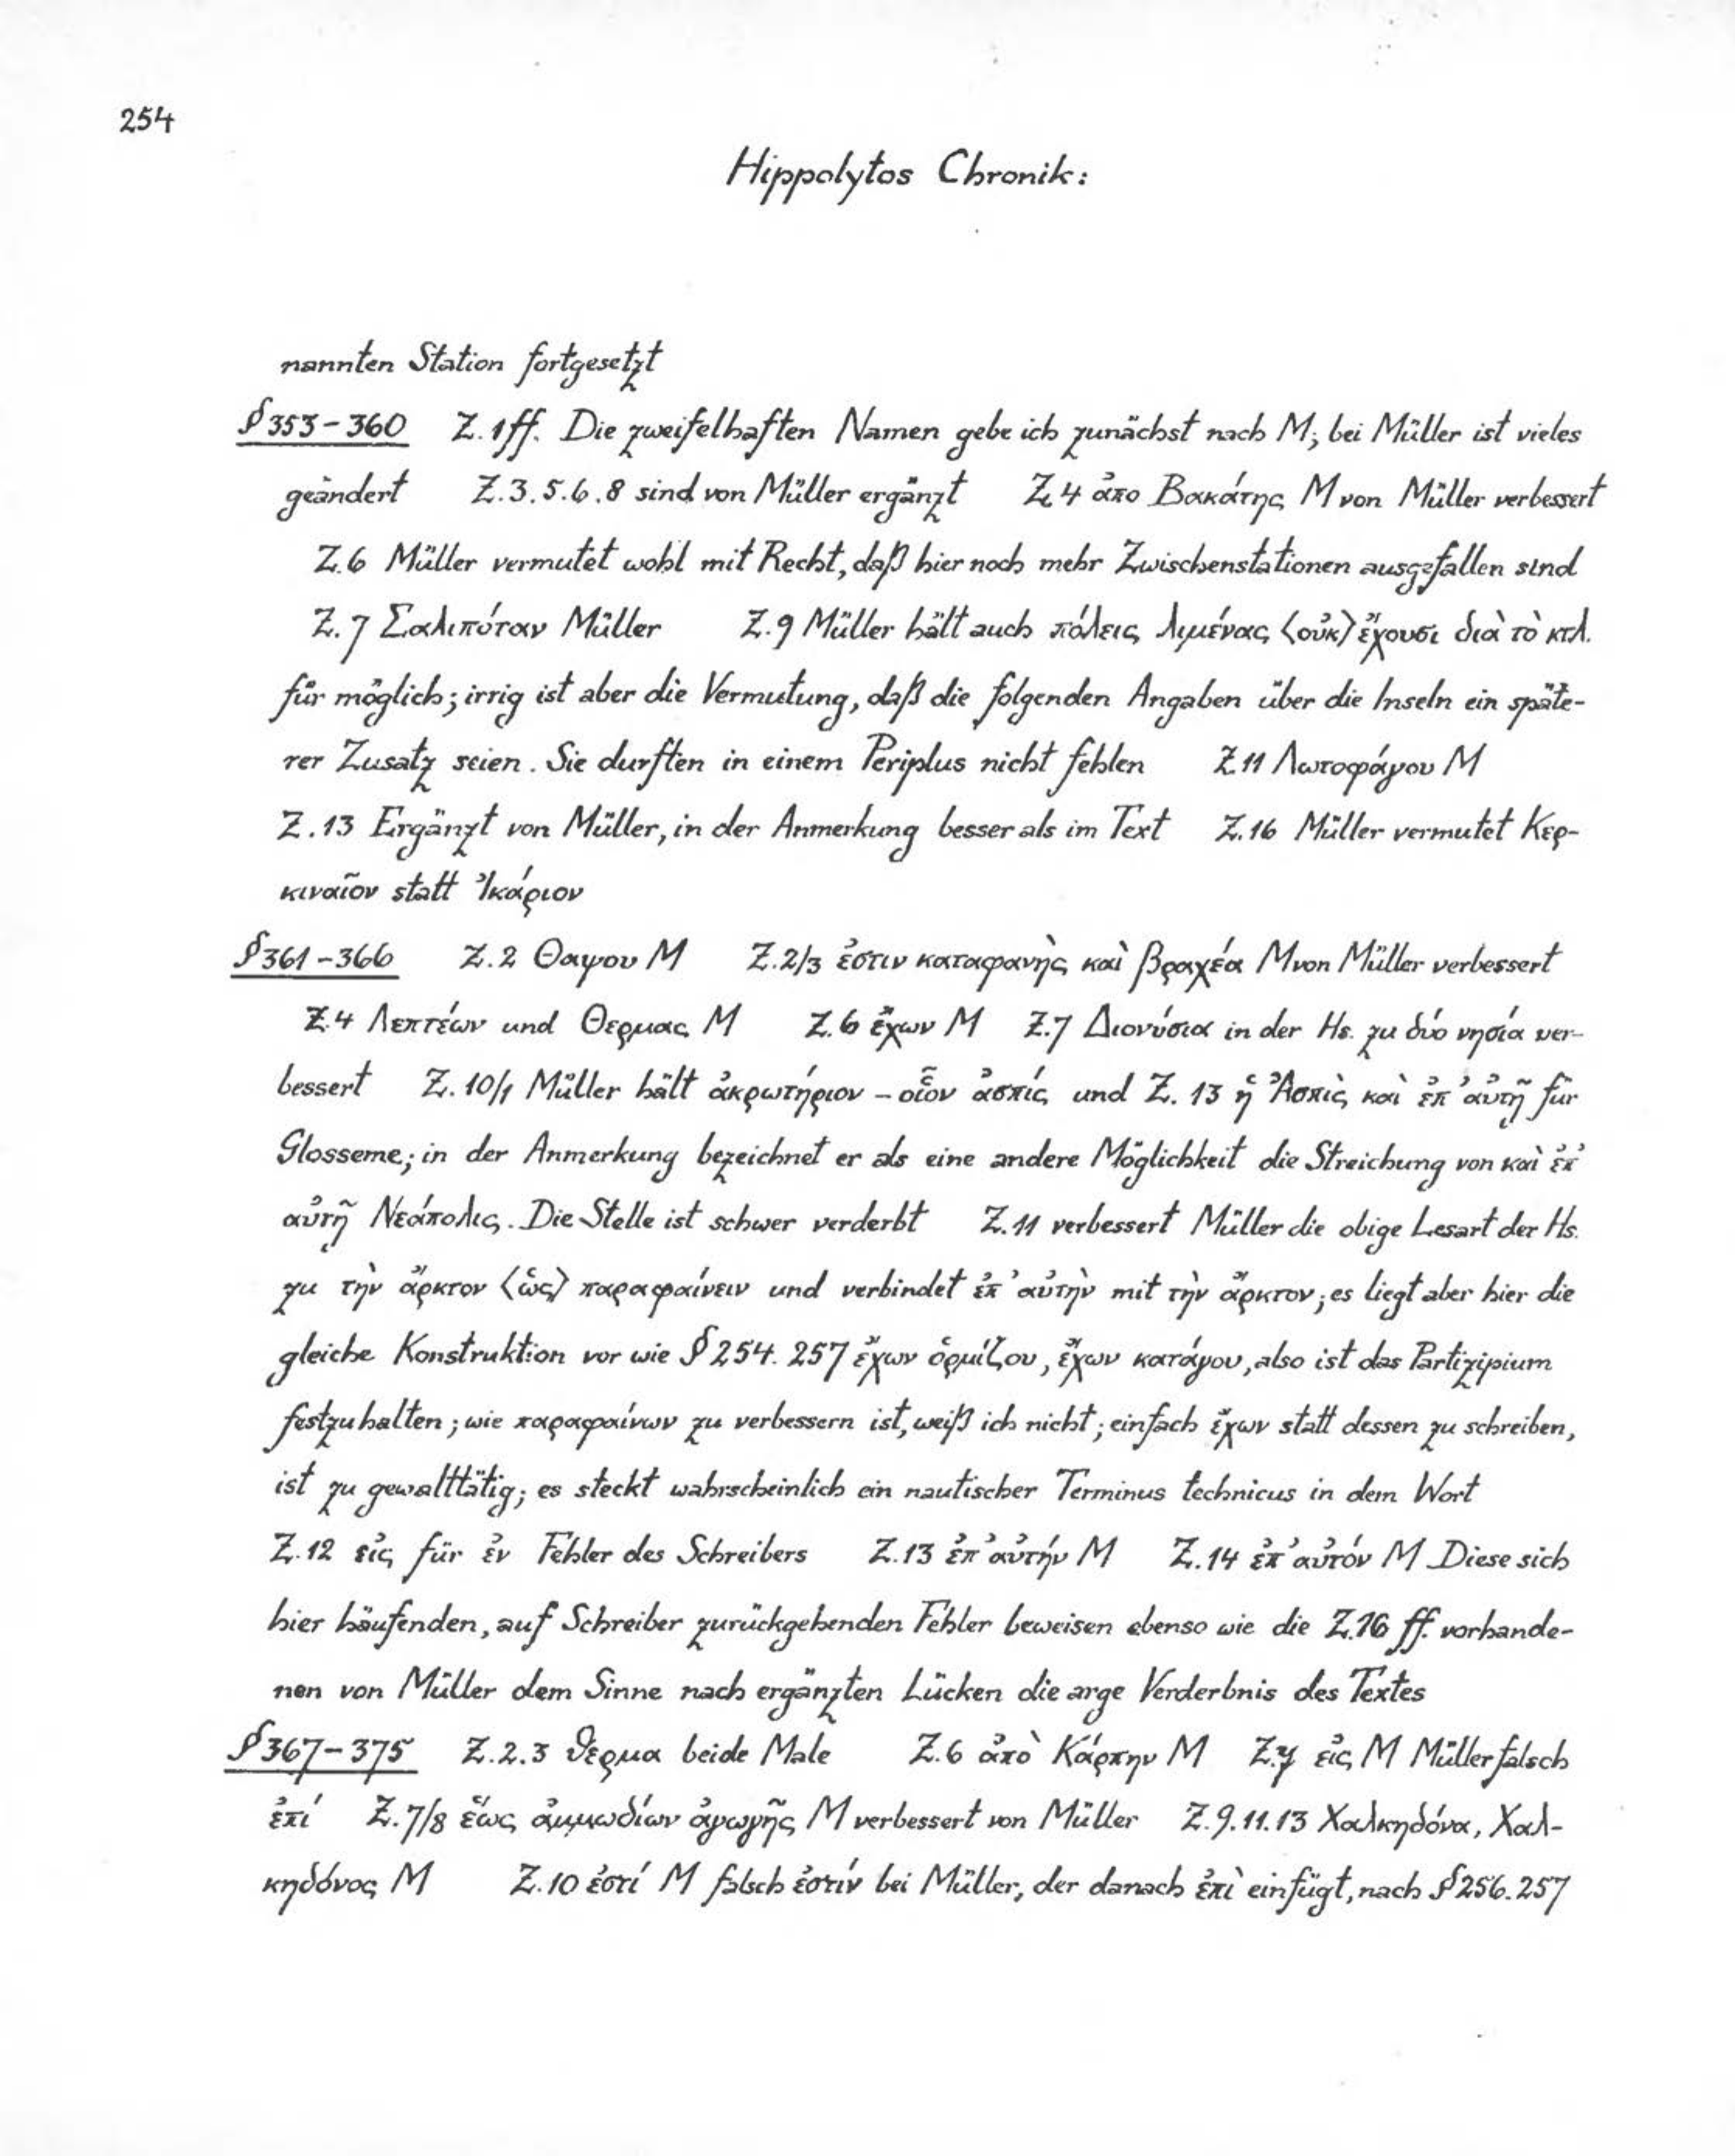 254
Hippolytos Chronik:
nannten Station fortgesetzt
§ 353-360 Z. 1ff. Die zweifelhaften Namen gebe ich zunächst nach M; bei Müller ist vieles
geändert Z. 3. 5. 6. 8 sind von Müller ergänzt Z. 4 ἀπο Βακάτης M von Müller verbessert
Z. 6 Müller vermutet wohl mit Recht, daß hier noch mehr Zwischenstationen ausgefallen sind
Z. 7 Σαλιπόταν Müller Z. 9 Müller hält auch πόλεις λιμένας ⟨οὐκ⟩ ἔχουσι διὰ τὸ κτλ.
für möglich; irrig ist aber die Vermutung, daß die folgenden Angaben über die Inseln ein späte-
rer Zusatz seien. Sie durften in einem Periplus nicht fehlen Z. 11 Λωτοφάγου M
Z. 13 Ergänzt von Müller, in der Anmerkung besser als im Text Z. 16 Müller vermutet Κερ-
κιναῖον statt Ἰκάριον
§ 361-366 Z. 2 Θαψου M Z. 2/3 ἐστιν καταφανὴς καὶ βραχέα M von Müller verbessert
Z. 4 Λεπτέων und Θερμας M Z. 6 ἔχων M Z. 7 Διονύσια in der Hs. zu δύο νησία ver-
bessert Z. 10/1 Müller hält ἀκρωτήριον – οἷον ἀσπίς und Z. 13 ἡ Ἀσπὶς καὶ ἐπ' αὐτῇ für
Glosseme; in der Anmerkung bezeichnet er als eine andere Möglichkeit die Streichung von καὶ ἐπ'
αὐτῇ Νεάπολις. Die Stelle ist schwer verderbt Z. 11 verbessert Müller die obige Lesart der Hs.
zu τὴν ἄρκτον ⟨ὡς⟩ παραφαίνειν und verbindet ἐπ' αὐτὴν mit τὴν ἄρκτον; es liegt aber hier die
gleiche Konstruktion vor wie § 254. 257 ἔχων ὁρμίζου, ἔχων κατάγου, also ist das Partizipium
festzuhalten; wie παραφαίνων zu verbessern ist, weiß ich nicht; einfach ἔχων statt dessen zu schreiben,
ist zu gewalttätig; es steckt wahrscheinlich ein nautischer Terminus technicus in dem Wort
Z. 12 εἰς für ἐν Fehler des Schreibers Z. 13 ἐπ' αὐτήν M Z. 14 ἐπ' αὐτόν M Diese sich
hier häufenden, auf Schreiber zurückgehenden Fehler beweisen ebenso wie die Z. 16 ff. vorhande-
nen von Müller dem Sinne nach ergänzten Lücken die arge Verderbnis des Textes
§ 367-375 Z. 2. 3 θερμα beide Male Z. 6 ἀπὸ Κάρπην M Z. 7 εἰς M Müller falsch
ἐπί Z. 7/8 ἕως ἀμμωδίων ἀγωγῆς M verbessert von Müller Z. 9. 11. 13 Χαλκηδόνα, Χαλ-
κηδόνος M Z. 10 ἐστί M falsch ἐστίν bei Müller, der danach ἐπὶ einfügt, nach § 256. 257